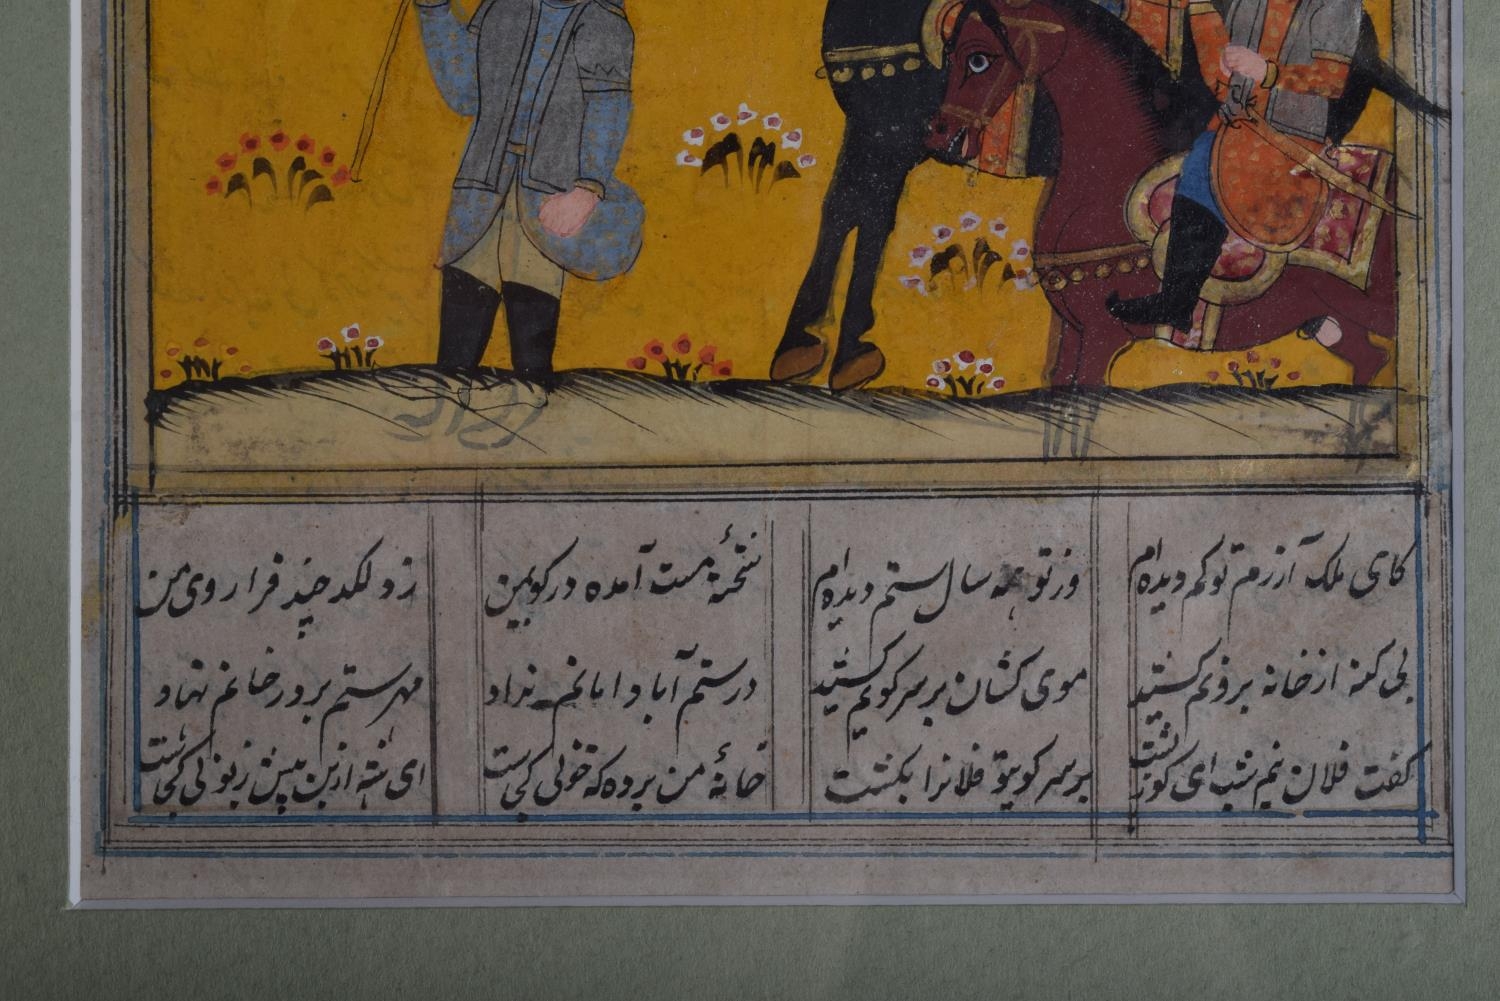 کای ملک آزرم تو کم دیده‌ام وز تو همه سال ستم دیده‌ام شحنهٔ مست آمده در کوی من زد لکد چند فرا روی من
بی کنه از خانه برونم کشید موی کشان بر سر کویم کشید در ستم آباد امانم نداد مهر ستم بر در خانم نهاد
کفت فلان نیم شب ای کوژپشت بر سر کوی تو فلانرا بکشت خانهٔ من برد که خونی کجاست ای شه ازین بیش زبونی کجاست